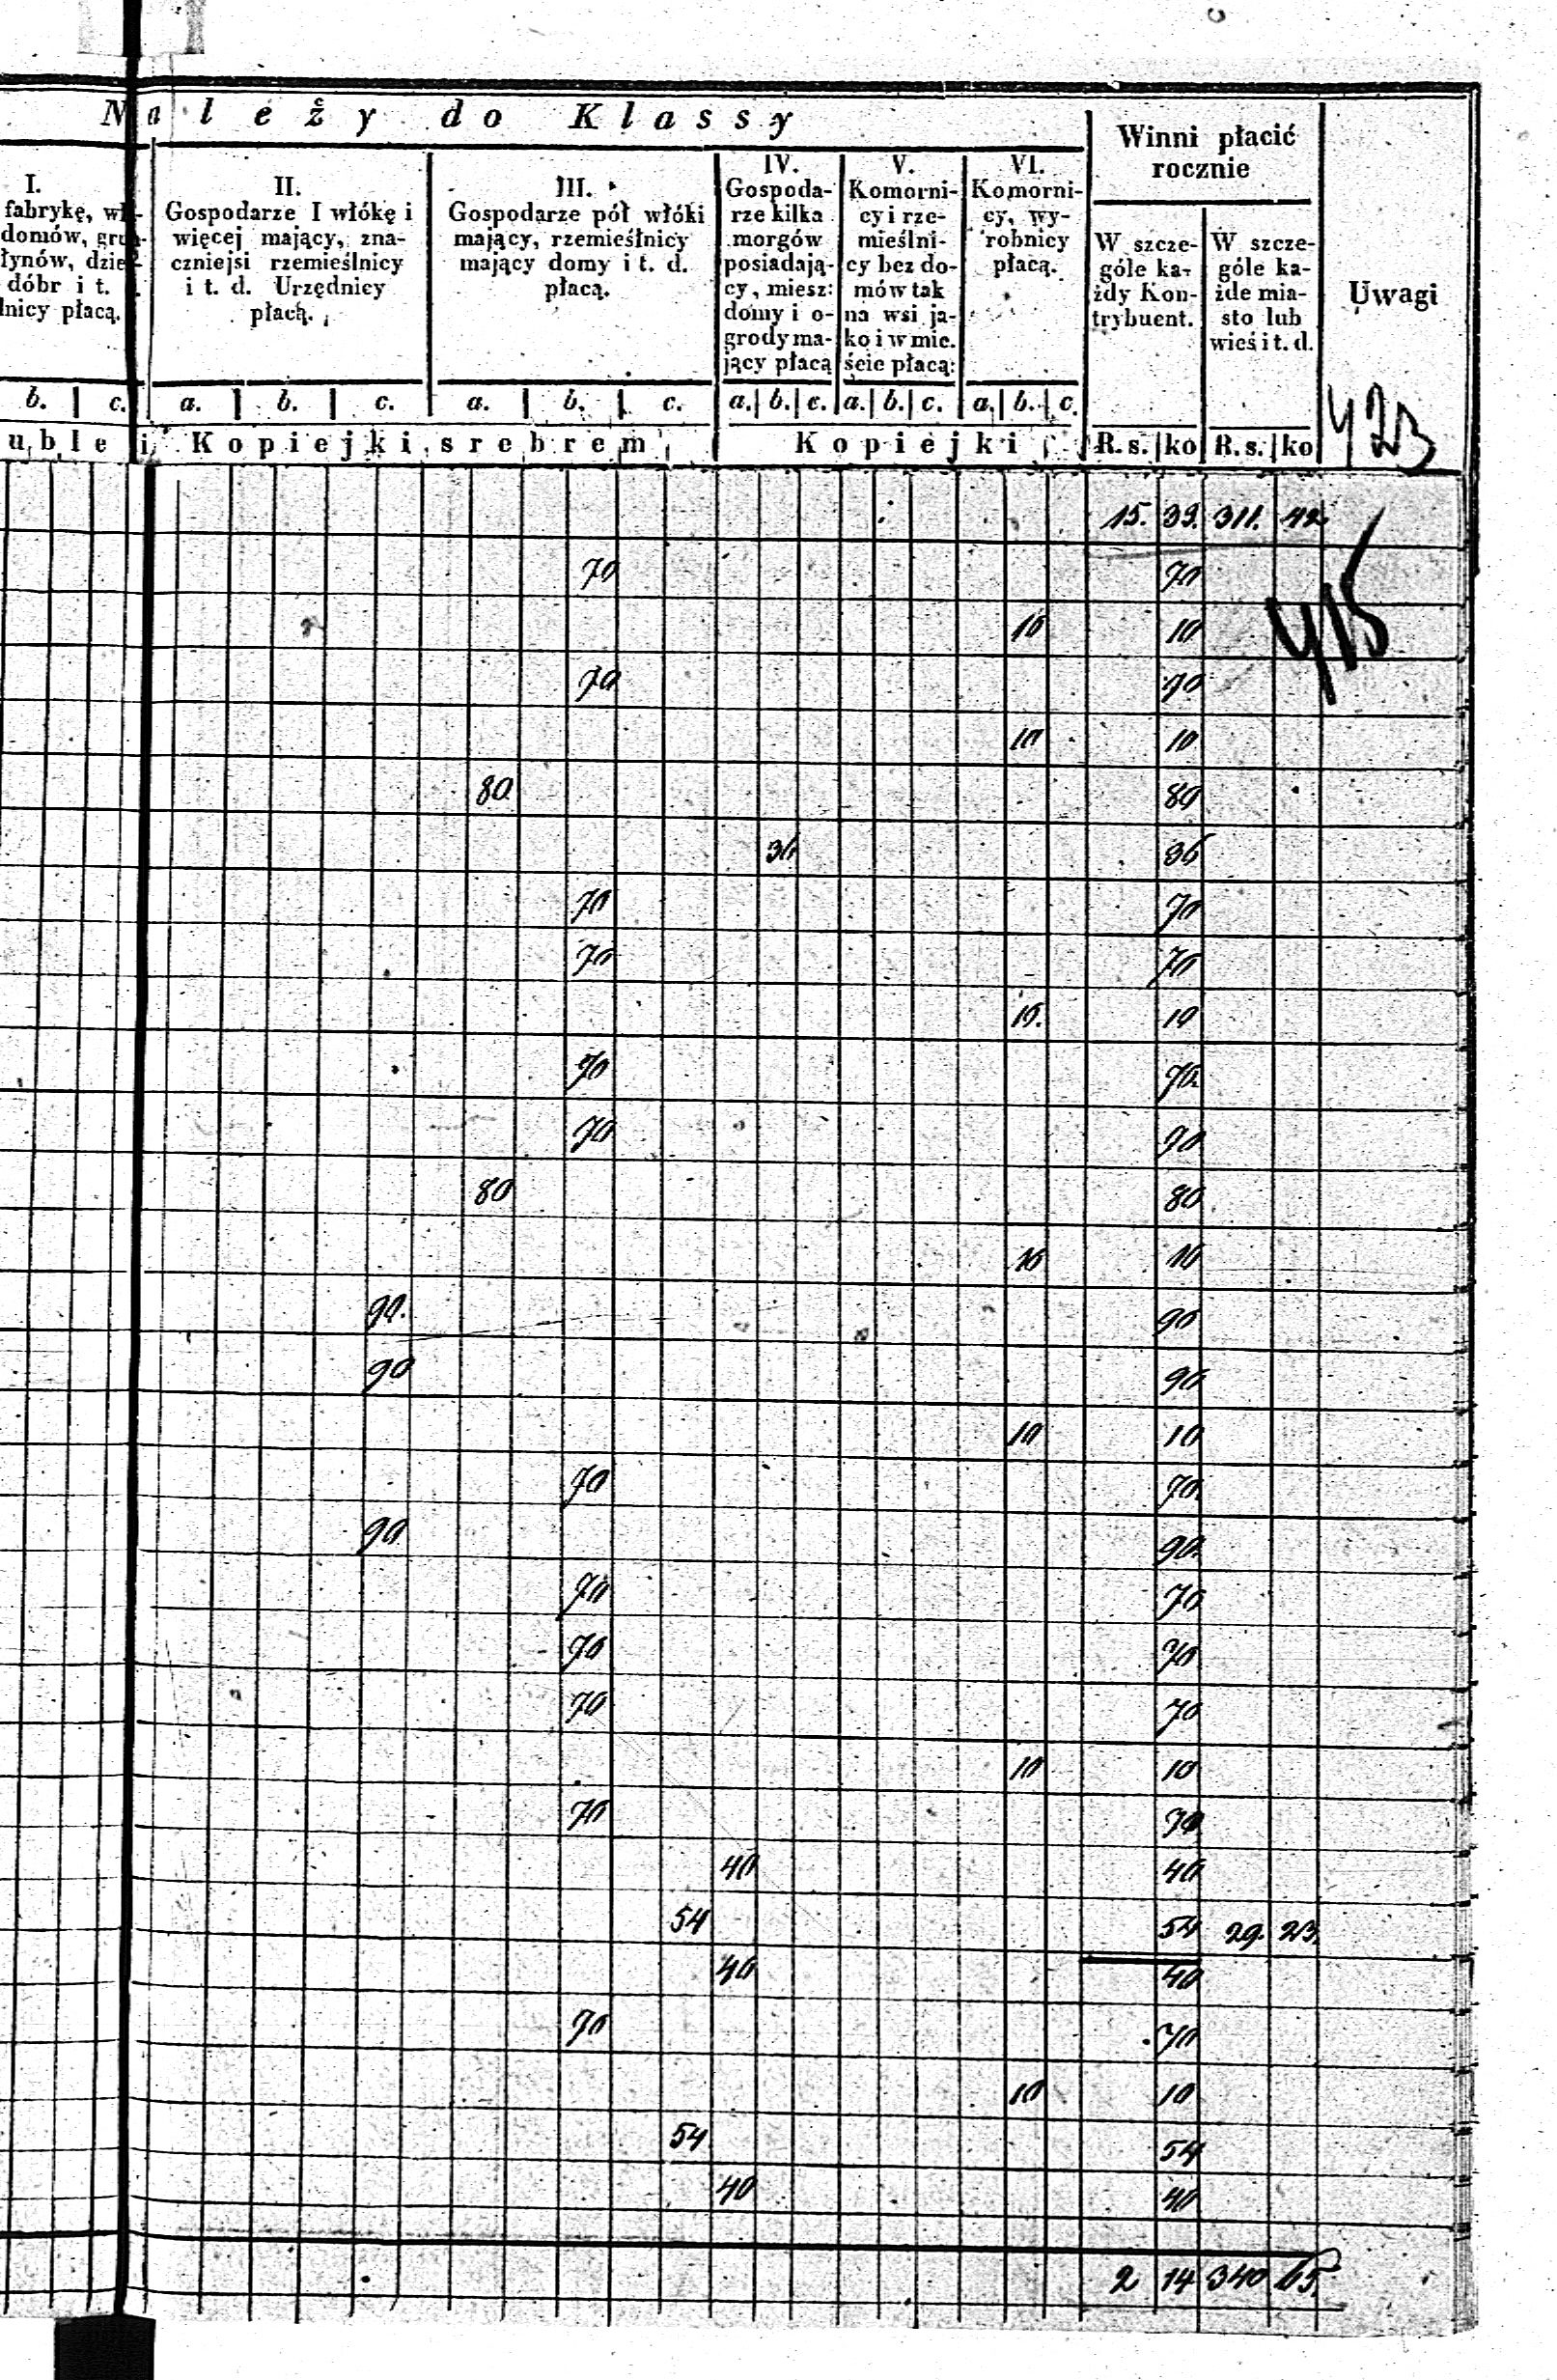 Należy do Klassy
Winni płacić
rocznie
Uwagi
I.
fabrykę, wł-
domów, grun-
łynów, dzier-
dóbr i t.
lnicy płacą.
II.
Gospodarze I włókę i
więcej mający, zna-
czniejsi rzemieślnicy
i t. d. Urzędnicy
płacą.
III.
Gospodarze pół włóki
mający, rzemieślnicy
mający domy i t. d.
płacą.
IV.
Gospoda-
rze kilka
morgów
posiadają-
cy, miesz:
domy i o-
grody ma-
jący płacą
V.
Komorni-
cy i rze-
mieślni-
cy bez do-
mów tak
na wsi ja-
ko i w mie.
ście płacą:
VI.
Komorni-
cy, wy-
robnicy
płacą.
W szcze-
góle ka-
żdy Kon-
trybuent.
W szcze-
góle ka-
żde mia-
sto lub
wieś i t. d.
b. c. a. b. c. a. b. c. a. b. c. a. b. c. a. b. c.
uble i Kopiejki srebrem Kopiejki R. s. ko R. s. ko
423
15. 39. 311. 42
415
70 70
10 10
70 70
10 10
80 80
36 36
70 70
70 70
10. 10
70 70
70 70
80 80
10 10
90. 90
90 90
10 10
70 70
90 90
70 70
70 70
70 70
10 10
70 70
40 40
54 54 29. 23.
40 40
70 70
10 10
54 54
40 40
2 14 340 65.